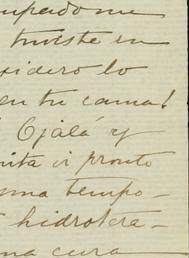 upado me
tuviste en
sidero lo
en tu cama!
Ojalá y
nita vi pronto
una tempo-
hidrotera-
na cura